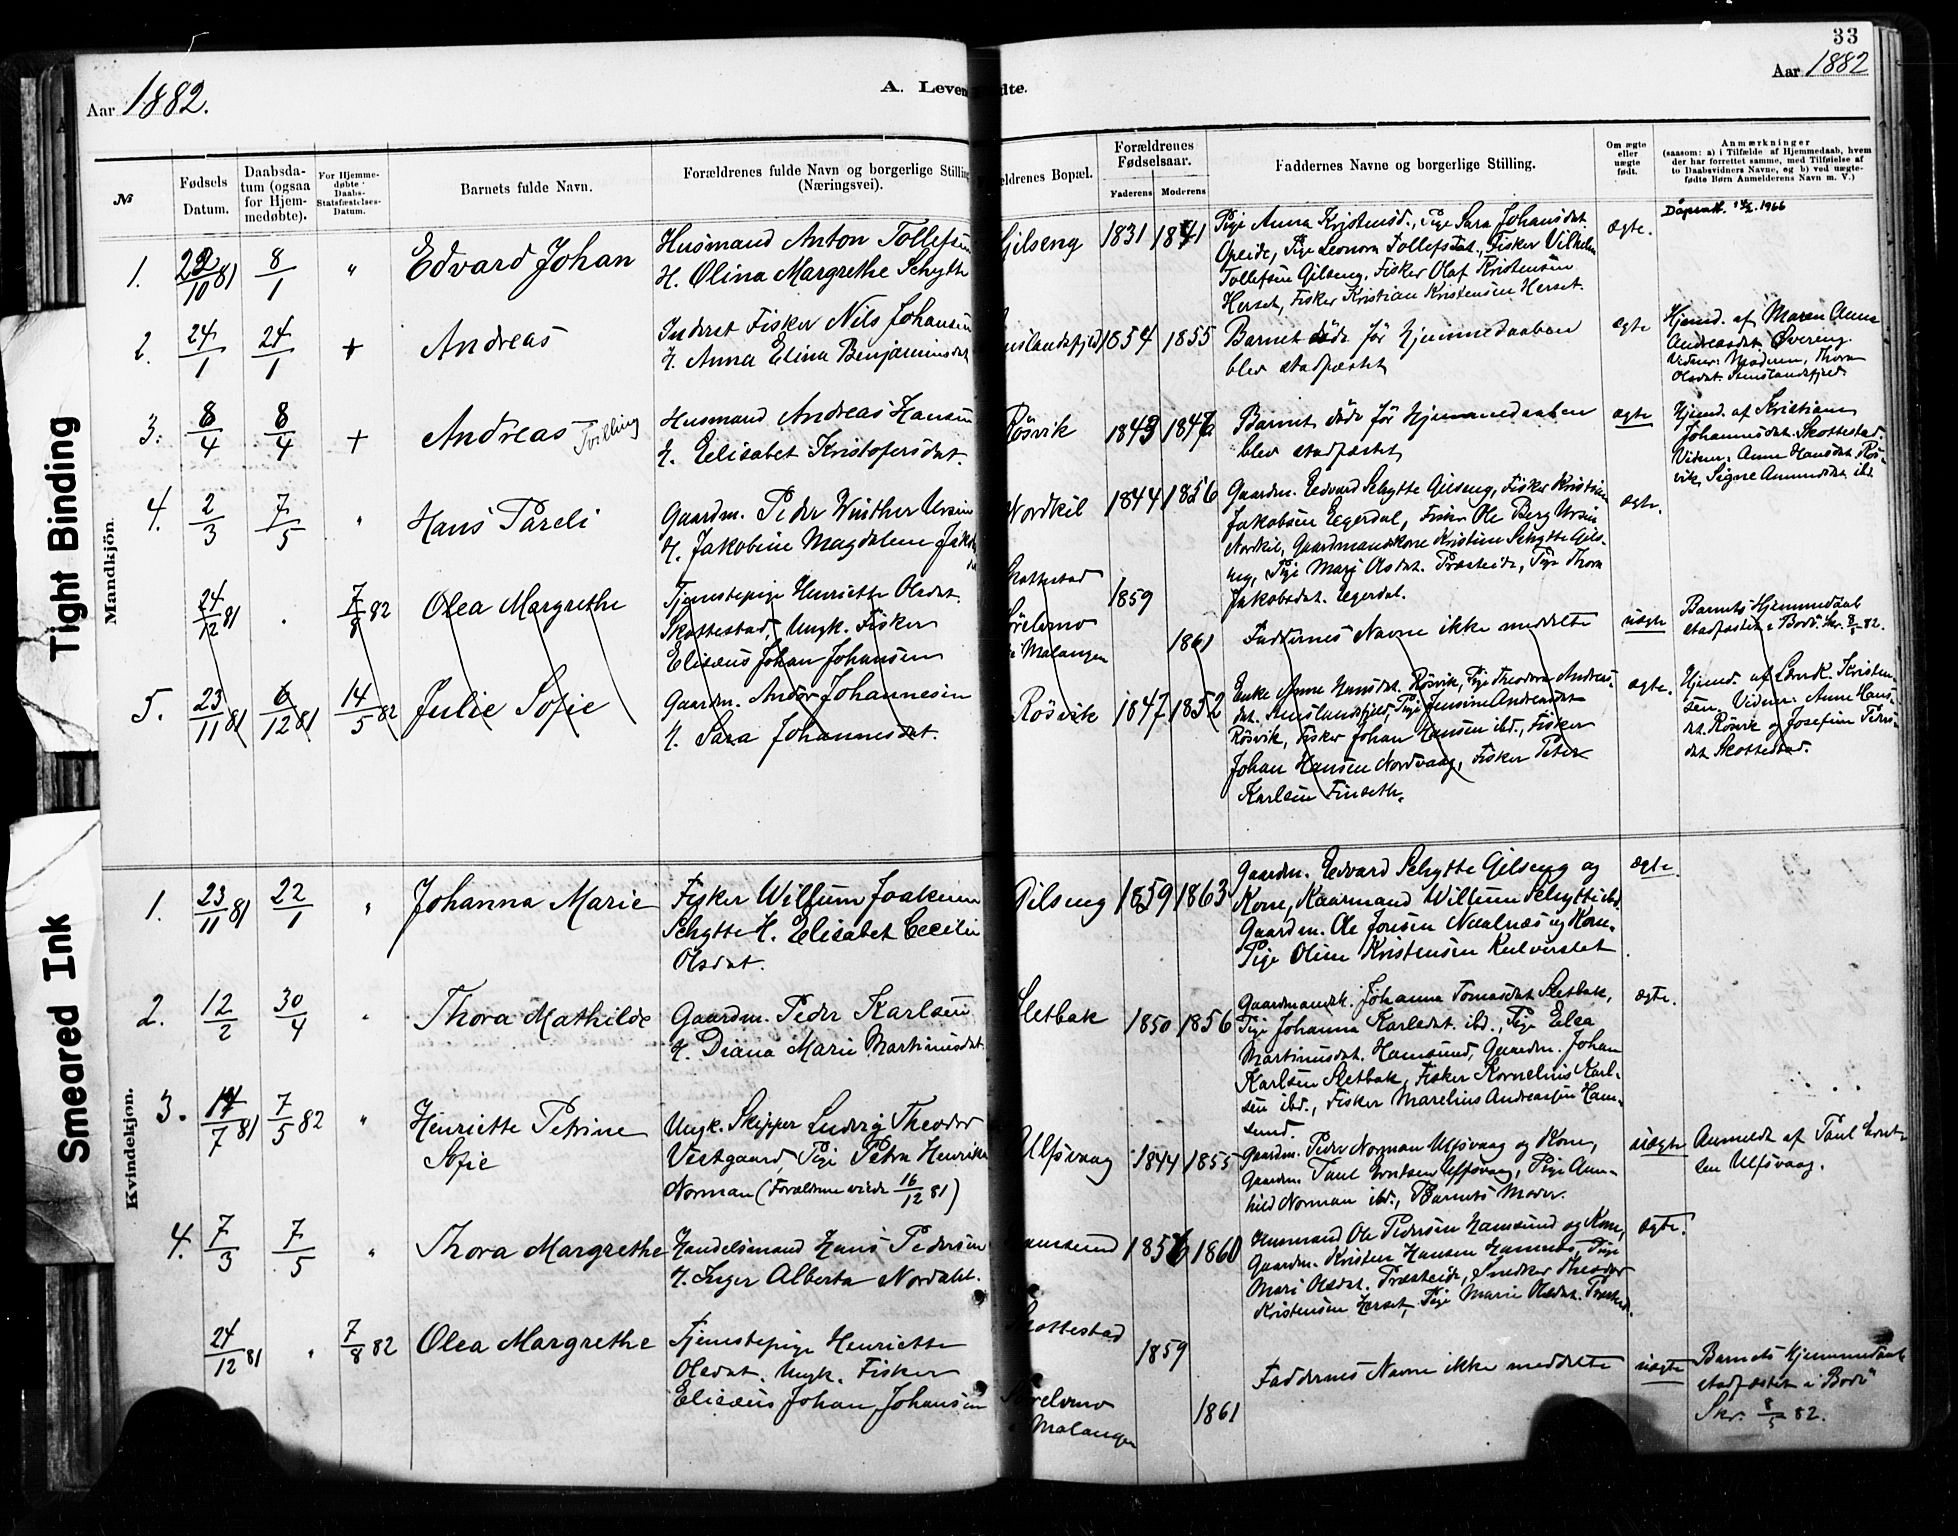 33
Aar 1882.
A. Leven
dte.
Aar 1882
№
Fødsels Datum.
Daabsdatum (ogsaa for Hjemmedøbte).
For Hjemmedøbte: Daabs-Statsfæstelses-Datum.
Barnets fulde Navn.
Forældrenes fulde Navn og borgerlige Stilling (Næringsvei).
ldrenes Bopæl.
Forældrenes Fødselsaar.
Faderens
Moderens
Faddernes Navne og borgerlige Stilling.
Om ægte eller uægte født.
Anmærkninger
(saasom: a) i Tilfælde af Hjemmedaab, hvem
der har forrettet samme, med Tilføielse af
to Daabsvidners Navne, og b) ved uægte-
fødte Børn Anmelderens Navn m. V.)
Tight Binding
Smeared Ink
Mandkjön.
1.
22/10 81
8/1
"
Edvard Johan
Husmand Anton Tollefsen
H. Olina Margrethe Schytte
Gilseng
1831
1841
Pige Anna Kristensd., Pige Sara Johansdat.
Opeide, Pige Leonora Tollefsdat., Fisker Vilhelm
Tollefsen Gilseng, Fisker Olaf Kristensen
Herset, Fisker Kristian Kristensen Herset.
ægte.
1966
2.
24/1
24/1
+
Andreas
Inderst Fisker Nils Johansen
H. Anna Elina Benjaminsdat
nslandsfjeld
1854
1855
Barnet døde før Hjemmedaaben
blev stadfæstet
ægte
Hjemd. af Maren Anna
Andreasdat. Øvereng.
Vidner: Moderen, Thora
Olsdat.
3.
8/4
8/4
+
Andreas Tvilling
Husmand Andreas Hansen
H. Elisabet Kristofersdat.
Røsvik
1843
1847
Barnet døde før Hjemmedaaben
blev stadfæstet
ægte
Hjemd. af Kristiane
Johannesdat. Skottestad.
Vidner: Anne Hansdat. Røs-
vik, Signe Amundsdat. ibd.
4.
2/3
7/5
"
Hans Pareli
Gaardm. Peder Winther Ursin
H. Jakobine Magdalena Jakobs
Nordkil
1844
1856
Gaardm. Edvard Schytte Gilseng, Fisker Kristian
Jakobsen Egerdal, Fisker Ole Berg Ursin
Nordkil, Gaardmandskone Kristine Schytte Gils-
eng, Pige Mari Olsdat. Præsteide, Pige Thora
Jakobsdat. Egerdal.
ægte.
24/12 81
7/8 82
Olea Margrethe
Tjenestepige Henriette Olsdat.
Skottestad, Ungk. Fisker
Eliseus Johan Johansen
Skottestad
Sørelvmo
i Malangen
1859
1861
Faddernes Navne ikke meddelte
uægte
Barnets Hjemmedaab
stadfæstet i Bodö. Skr. 8/5 82.
5.
23/11 81
6/12 81
14/5 82
Julie Sofie
Gaardm. Andor Johannesen
H. Sara Johannesdat.
Røsvik
1847
1852
Enke Anne Hansdat. Røsvik, Pige Theodora Andreas-
dat. Senslandsfjeld, Pige Jensine Andreasdat.
Røsvik, Fisker Johan Hansen ibd., Fisker
Johan Hansen Nordvaag, Fisker Peter
Karlsen Finseth.
ægte.
Hjemd. af Kristen-
sen. Vidner: Anne Hans-
dat. Røsvik og Josefine Peders-
dat. Skottestad.
Kvindekjøn.
1.
23/11 81
22/1
"
Johanna Marie
Fisker Willum Joakum
Schytte H. Elisabet Cecilie
Olsdat.
Gilseng
1859
1863
Gaardm. Edvard Schytte Gilseng og
Kone, Kaarmand Willum Schytte ibd.
Gaardm. Ole Jonsen Naalnæs og Kone.
Pige Oline Kristensen Kulverstet
ægte.
2.
12/2
30/4
"
Thora Mathilde
Gaardm. Peder Karlsen
H. Diana Marie Martinusdat.
Sletbak
1850
1856
Gaardmandsk. Johanna Tomasdat. Sletbak,
Pige Johanna Karlsdat. ibd., Pige Elea
Martinusdat. Hamsund, Gaardm. Johan
Karlsen Sletbak, Fisker Kornelius Karl-
sen ibd., Fisker Marelius Andreassen Ham-
sund.
ægte.
3.
14/7 81
7/5 82
"
Henriette Petrine
Sofie
Ungk. Skipper Ludvig Theodor
Vestgaard, Pige Petra Henrikke
Norman (Forældrene viede 16/12 81)
Ulfsvaag
1844
1855
Gaardm. Peder Norman Ulfsvaag og Kone,
Gaardm. Paul Erntsen Ulfsvaag, Pige Ann-
hild Norman ibd., Barnets Moder.
uægte
Anmeldt af Paul Ernt-
sen Ulfsvaag.
4.
7/3
7/5
"
Thora Margrethe
Handelsmand Hans Pedersen
H. Inger Alberta Nordahl.
amsund
1856
1860
Husmand Ole Pedersen Hamsund og Kone,
Gaardm. Kristen Hansen Hamnes, Pige
Mari Olsdat. Præsteide, Snedker Theodor
Kristensen Herset, Pige Marie Olsdat. Præsteid.
ægte.
24/12 81
"
7/8 82
Olea Margrethe
Tjenestepige Henriette
Olsdat. Ungk. Fisker
Eliseus Johan Johansen
Skottestad
Sørelvmo
i Malangen
1859
1861
Faddernes Navne ikke meddelte
uægte
Barnets Hjemmedaab
stadfæstet i Bodö
Skr. 8/5 82.